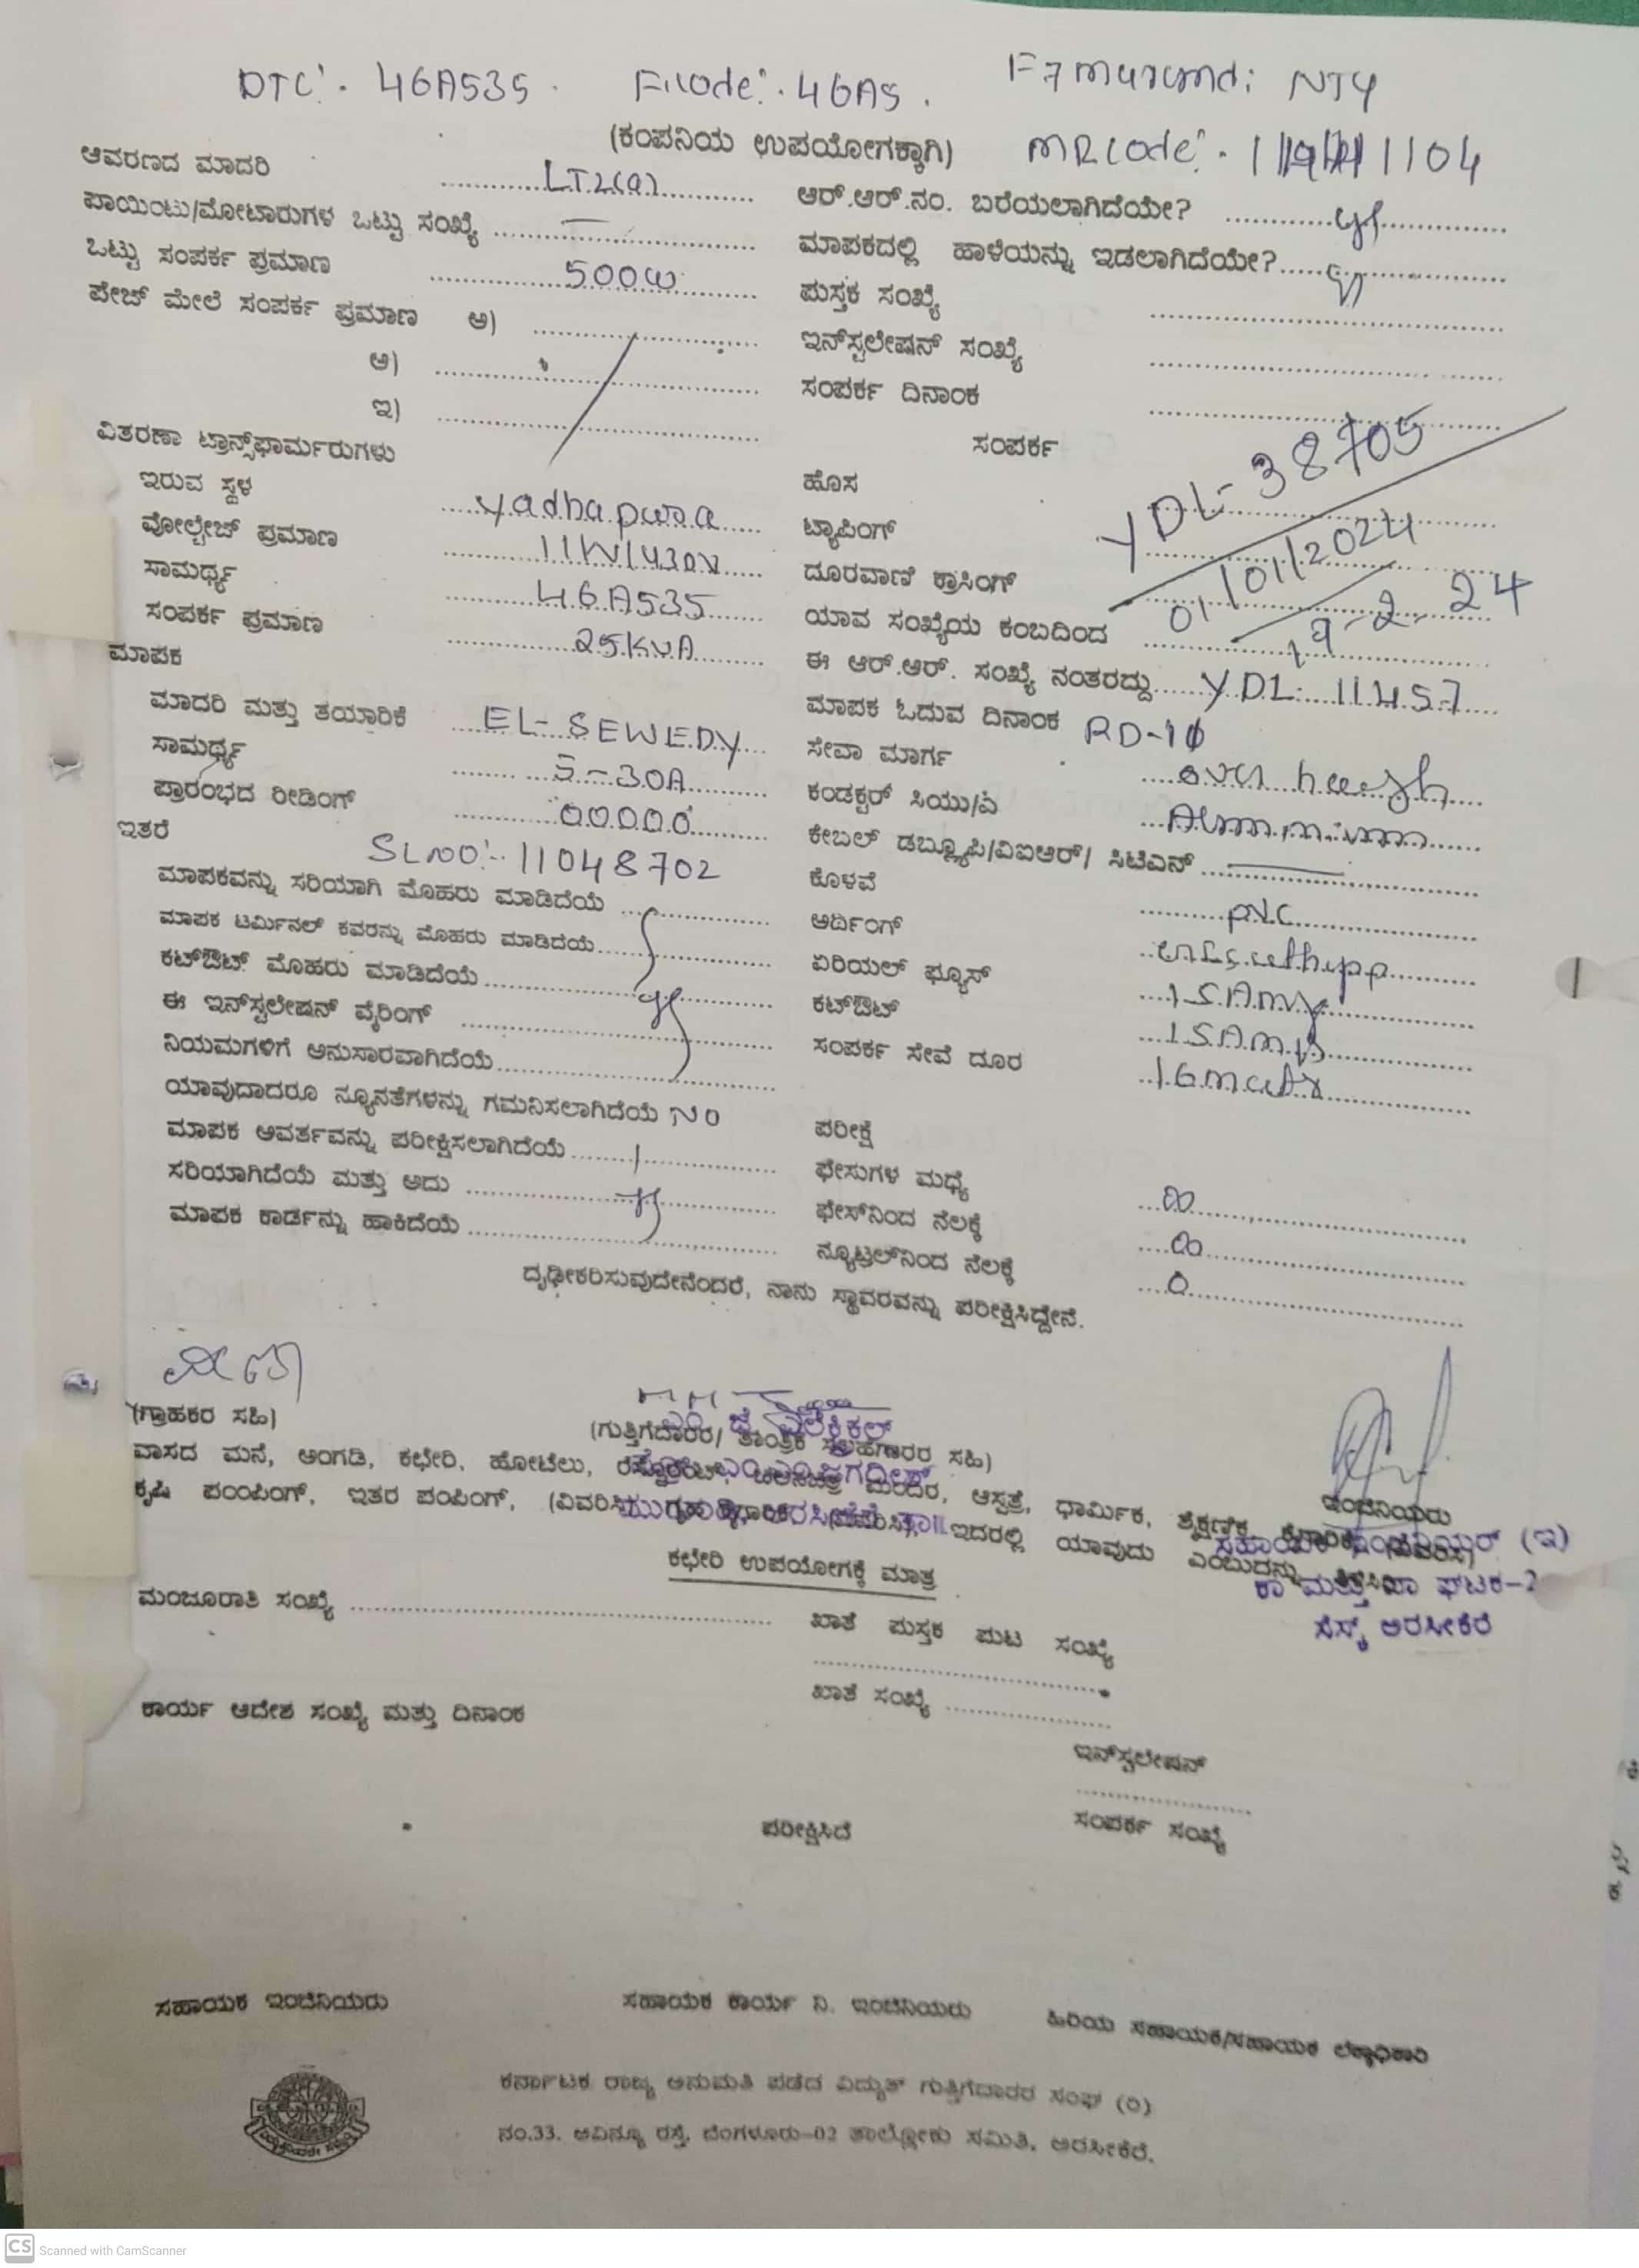 DTC: 46A535. Fcode: 46A5. NJY
(ಕಂಪನಿಯ ಉಪಯೋಗಕ್ಕಾಗಿ) MR code: 1104
ಆವರಣದ ಮಾದರಿ LT2(a) ಆರ್.ಆರ್.ನಂ. ಬರೆಯಲಾಗಿದೆಯೇ?
ಪಾಯಿಂಟು/ಮೋಟಾರುಗಳ ಒಟ್ಟು ಸಂಖ್ಯೆ — ಮಾಪಕದಲ್ಲಿ ಹಾಳೆಯನ್ನು ಇಡಲಾಗಿದೆಯೇ?
ಒಟ್ಟು ಸಂಪರ್ಕ ಪ್ರಮಾಣ 500W ಪುಸ್ತಕ ಸಂಖ್ಯೆ
ಪೇಜ್ ಮೇಲೆ ಸಂಪರ್ಕ ಪ್ರಮಾಣ ಅ) ಇನ್‌ಸ್ಟಲೇಷನ್ ಸಂಖ್ಯೆ
ಆ) ಸಂಪರ್ಕ ದಿನಾಂಕ
ಇ)
ವಿತರಣಾ ಟ್ರಾನ್ಸ್‌ಫಾರ್ಮರುಗಳು ಸಂಪರ್ಕ YDL-38705
ಇರುವ ಸ್ಥಳ yadhapura ಹೊಸ
ವೋಲ್ಟೇಜ್ ಪ್ರಮಾಣ ಟ್ಯಾಪಿಂಗ್ 01/01/2024
ಸಾಮರ್ಥ್ಯ 46A535 ದೂರವಾಣಿ ಕ್ರಾಸಿಂಗ್
ಸಂಪರ್ಕ ಪ್ರಮಾಣ 25KVA ಯಾವ ಸಂಖ್ಯೆಯ ಕಂಬದಿಂದ 19-2-24
ಮಾಪಕ ಈ ಆರ್.ಆರ್. ಸಂಖ್ಯೆ ನಂತರದ್ದು YDL: 11457
ಮಾದರಿ ಮತ್ತು ತಯಾರಿಕೆ EL-SEWEDY ಮಾಪಕ ಓದುವ ದಿನಾಂಕ RD-10
ಸಾಮರ್ಥ್ಯ 5-30A ಸೇವಾ ಮಾರ್ಗ
ಪ್ರಾರಂಭದ ರೀಡಿಂಗ್ 00000 ಕಂಡಕ್ಟರ್ ಸಿಯು/ಎ
ಇತರೆ SL no:- 11048702 ಕೇಬಲ್ ಡಬ್ಲ್ಯೂಪಿ/ವಿಐಆರ್/ ಸಿಟಿಎನ್ —
ಮಾಪಕವನ್ನು ಸರಿಯಾಗಿ ಮೊಹರು ಮಾಡಿದೆಯೆ ಕೊಳವೆ PVC
ಮಾಪಕ ಟರ್ಮಿನಲ್ ಕವರನ್ನು ಮೊಹರು ಮಾಡಿದೆಯೆ ಅರ್ಥಿಂಗ್
ಕಟ್‌ಔಟ್ ಮೊಹರು ಮಾಡಿದೆಯೆ ಏರಿಯಲ್ ಫ್ಯೂಸ್ 15Amp
ಈ ಇನ್‌ಸ್ಟಲೇಷನ್ ವೈರಿಂಗ್ ಕಟ್‌ಔಟ್ 15Amp
ನಿಯಮಗಳಿಗೆ ಅನುಸಾರವಾಗಿದೆಯೆ ಸಂಪರ್ಕ ಸೇವೆ ದೂರ
ಯಾವುದಾದರೂ ನ್ಯೂನತೆಗಳನ್ನು ಗಮನಿಸಲಾಗಿದೆಯೆ NO ಪರೀಕ್ಷೆ
ಮಾಪಕ ಆವರ್ತವನ್ನು ಪರೀಕ್ಷಿಸಲಾಗಿದೆಯೆ ಫೇಸುಗಳ ಮಧ್ಯೆ ∞
ಸರಿಯಾಗಿದೆಯೆ ಮತ್ತು ಅದು ಫೇಸ್‌ನಿಂದ ನೆಲಕ್ಕೆ ∞
ಮಾಪಕ ಕಾರ್ಡನ್ನು ಹಾಕಿದೆಯೆ ನ್ಯೂಟ್ರಲ್‌ನಿಂದ ನೆಲಕ್ಕೆ 0
ದೃಢೀಕರಿಸುವುದೇನೆಂದರೆ, ನಾನು ಸ್ಥಾವರವನ್ನು ಪರೀಕ್ಷಿಸಿದ್ದೇನೆ.
(ಗ್ರಾಹಕರ ಸಹಿ) (ಗುತ್ತಿಗೆದಾರರ/ ತಾಂತ್ರಿಕ ಸಲಹೆಗಾರರ ಸಹಿ) ಇಂಜಿನಿಯರು
ವಾಸದ ಮನೆ, ಅಂಗಡಿ, ಕಛೇರಿ, ಹೋಟೆಲು, ಮಂದಿರ, ಆಸ್ಪತ್ರೆ, ಧಾರ್ಮಿಕ, ಶೈಕ್ಷಣಿಕ
ಕೃಷಿ ಪಂಪಿಂಗ್, ಇತರ ಪಂಪಿಂಗ್, ಇದರಲ್ಲಿ ಯಾವುದು ಎಂಬುದನ್ನು
ಸಹಾಯಕ ಇಂಜಿನಿಯರ್ (ಇ)
ಕಾ ಮತ್ತು ಪಾ ಘಟಕ-2
ಸೆಸ್ಕ್ ಅರಸೀಕೆರೆ
ಕಛೇರಿ ಉಪಯೋಗಕ್ಕೆ ಮಾತ್ರ
ಮಂಜೂರಾತಿ ಸಂಖ್ಯೆ ಖಾತೆ ಪುಸ್ತಕ ಪುಟ ಸಂಖ್ಯೆ
ಖಾತೆ ಸಂಖ್ಯೆ
ಕಾರ್ಯ ಆದೇಶ ಸಂಖ್ಯೆ ಮತ್ತು ದಿನಾಂಕ
ಇನ್‌ಸ್ಟಲೇಷನ್
ಪರೀಕ್ಷಿಸಿದೆ ಸಂಪರ್ಕ ಸಂಖ್ಯೆ
ಸಹಾಯಕ ಇಂಜಿನಿಯರು ಸಹಾಯಕ ಕಾರ್ಯ ನಿ. ಇಂಜಿನಿಯರು ಹಿರಿಯ ಸಹಾಯಕ/ಸಹಾಯಕ ಲೆಕ್ಕಾಧಿಕಾರಿ
ಕರ್ನಾಟಕ ರಾಜ್ಯ ಅನುಮತಿ ಪಡೆದ ವಿದ್ಯುತ್ ಗುತ್ತಿಗೆದಾರರ ಸಂಘ (ರಿ)
ನಂ.33. ಅವಿನ್ಯೂ ರಸ್ತೆ, ಬೆಂಗಳೂರು-02 ತಾಲ್ಲೋಕು ಸಮಿತಿ, ಅರಸೀಕೆರೆ.
CS Scanned with CamScanner